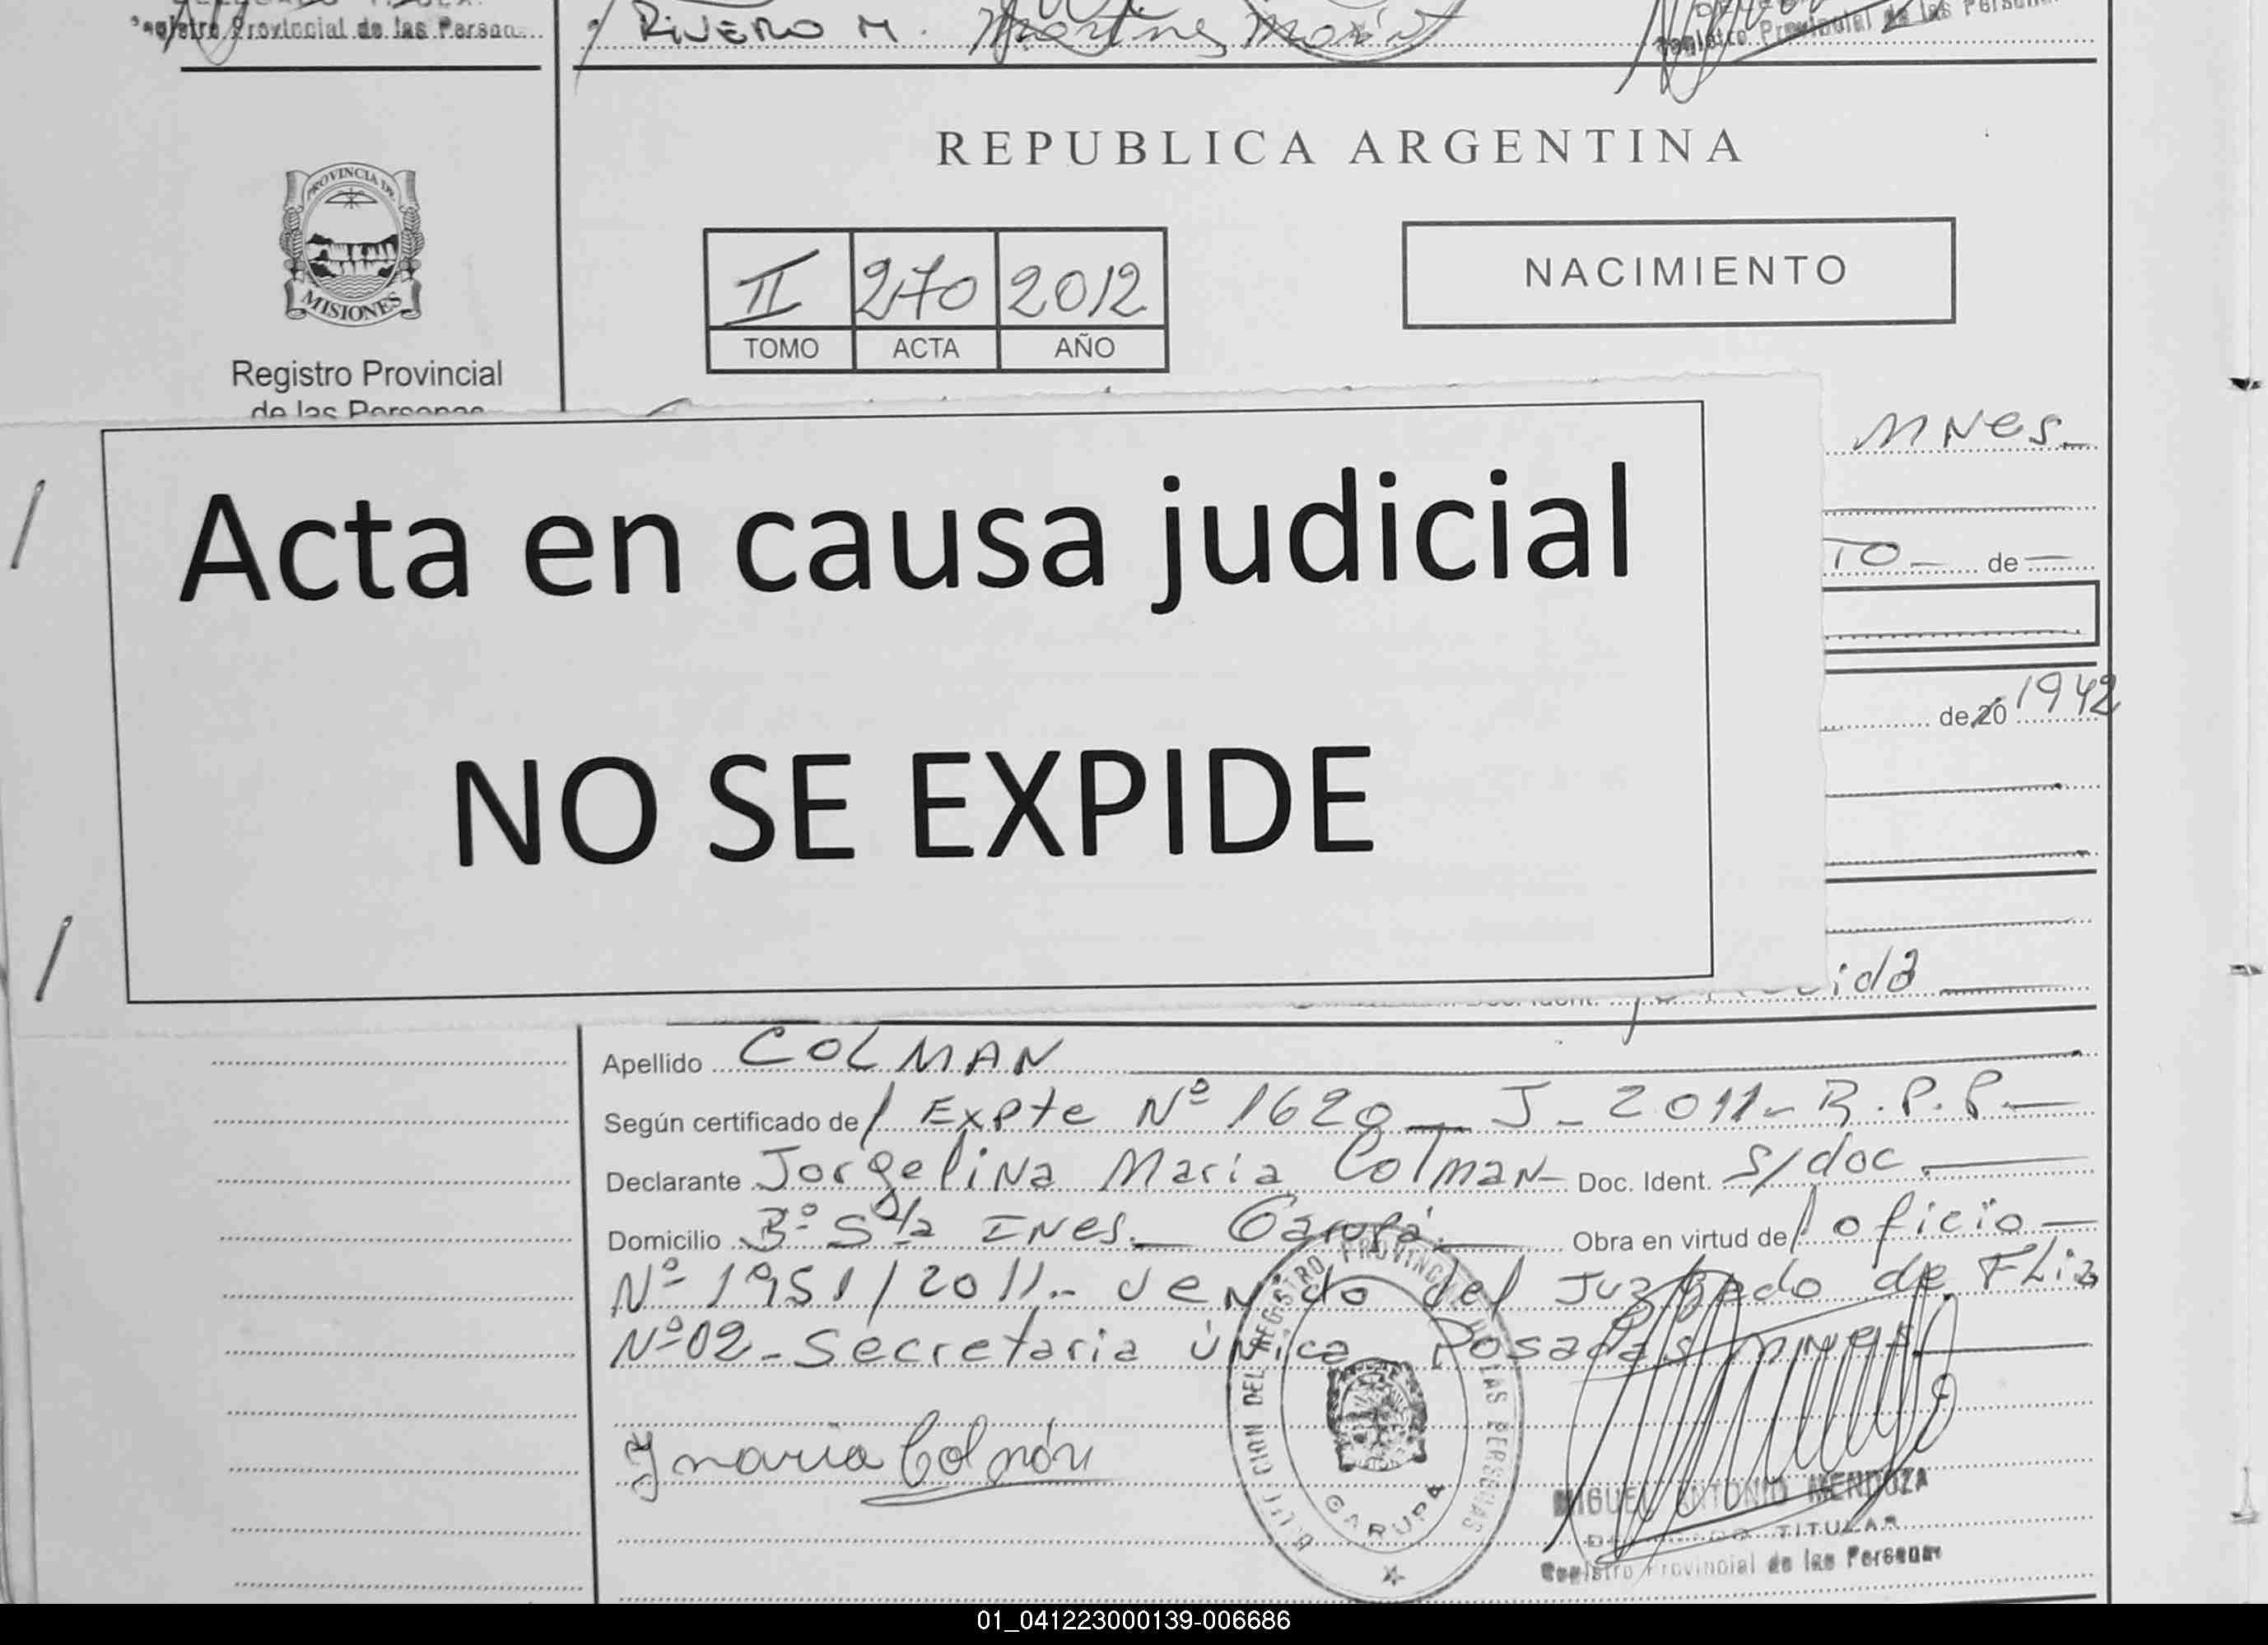 Registro Provincial de las Persona
RIVERO M.
Registro Provincial de las Persona
REPUBLICA ARGENTINA
PROVINCIA DE
MISIONES
II 270 2012
TOMO ACTA AÑO
NACIMIENTO
Registro Provincial
de las Personas
MNes
Acta en causa judicial
NO SE EXPIDE
TO de
de 20 1942
ida
Apellido COLMAN
Según certificado de Expte Nº 1620 - J - 2011 - R.P.P.
Declarante Jorgelina Maria Colman Doc. Ident. s/doc
Domicilio Bº Sta INes. Garupá. Obra en virtud de oficio
Nº 1951/2011.- venido del Juzgado de Flia
Nº 02 - Secretaria única Posadas MNes
J maria Colmán
DIRECCION DEL REGISTRO PROVINCIAL DE LAS PERSONAS
GARUPA
MIGUEL ANTONIO MENDOZA
DELEGADO TITULAR
Registro Provincial de las Personas
01_041223000139-006686